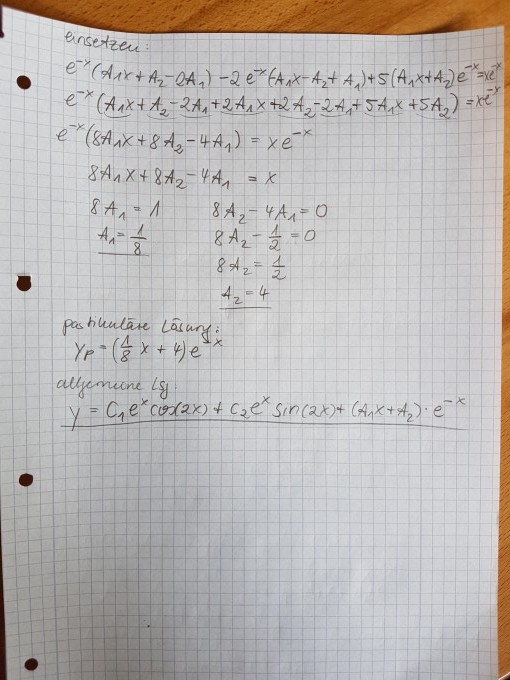 einsetzen:
e^-x(A₁x + A₂ - 2A₁) - 2e^-x(-A₁x - A₂ + A₁) + 5(A₁x + A₂)e^-x = xe^-x
e^-x(A₁x + A₂ - 2A₁ + 2A₁x + 2A₂ - 2A₁ + 5A₁x + 5A₂) = xe^-x
e^-x(8A₁x + 8A₂ - 4A₁) = xe^-x
8A₁x + 8A₂ - 4A₁ = x
8A₁ = 1    8A₂ - 4A₁ = 0
A₁ = 1/8    8A₂ - 1/2 = 0
8A₂ = 1/2
A₂ = 4
partikuläre Lösung:
yp = (1/8 x + 4)e^-x
allgemeine Lsg.
y = C₁e^x cos(2x) + C₂e^x sin(2x) + (A₁x + A₂)·e^-x